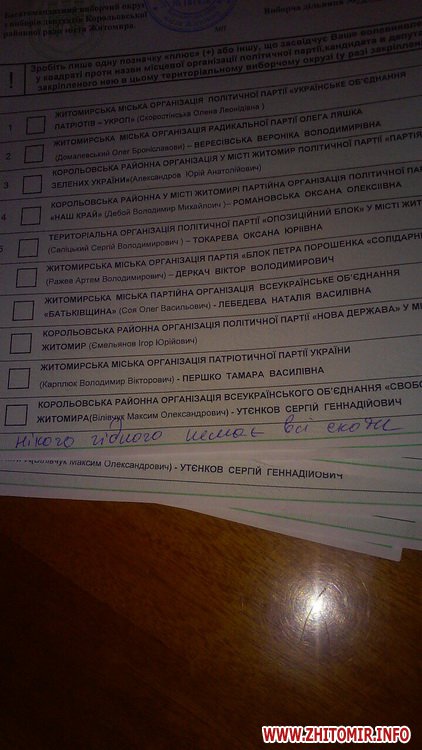 Багатомандатний виборчий округ
з виборів депутатів Корольовської
районної ради міста Житомира.
МП
Виборча дільниця №
! Зробіть лише одну позначку «плюс» (+) або іншу, що засвідчує Ваше волевиявлення
у квадраті проти назви місцевої організації політичної партії, кандидата в депутати,
закріпленого нею в цьому територіальному виборчому окрузі (у разі закріплення
1 ЖИТОМИРСЬКА МІСЬКА ОРГАНІЗАЦІЯ ПОЛІТИЧНОЇ ПАРТІЇ «УКРАЇНСЬКЕ ОБ'ЄДНАННЯ
ПАТРІОТІВ – УКРОП» (Сковростінська Олена Леонідівна )
2 ЖИТОМИРСЬКА МІСЬКА ОРГАНІЗАЦІЯ РАДИКАЛЬНОЇ ПАРТІЇ ОЛЕГА ЛЯШКА
(Домалевський Олег Броніславови) – ВЕРЕСІВСЬКА ВЕРОНІКА ВОЛОДИМИРІВНА
3 КОРОЛЬОВСЬКА РАЙОННА ОРГАНІЗАЦІЯ У МІСТІ ЖИТОМИР ПОЛІТИЧНОЇ ПАРТІЇ «ПАРТІЯ
ЗЕЛЕНИХ УКРАЇНИ»(Александров Юрій Анатолійович)
4 КОРОЛЬОВСЬКА РАЙОННА У МІСТІ ЖИТОМИРІ ПАРТІЙНА ОРГАНІЗАЦІЯ ПОЛІТИЧНОЇ ПАРТІЇ
«НАШ КРАЙ» (Дебой Володимир Михайлоич ) – РОМАНОВСЬКА ОКСАНА ОЛЕКСІЇВНА
5 ТЕРИТОРІАЛЬНА ОРГАНІЗАЦІЯ ПОЛІТИЧНОЇ ПАРТІЇ «ОПОЗИЦІЙНИЙ БЛОК» У МІСТІ
(Саліцький Сергій Володимирович ) – ТОКАРЕВА ОКСАНА ЮРІЇВНА
ЖИТОМИРСЬКА МІСЬКА ОРГАНІЗАЦІЯ ПАРТІЯ «БЛОК ПЕТРА ПОРОШЕНКА «СОЛІДАРНІ
(Ражев Артем Володимирович) – ДЕРКАЧ ВІКТОР ВОЛОДИМИРОВИЧ
ЖИТОМИРСЬКА МІСЬКА ПАРТІЙНА ОРГАНІЗАЦІЯ ВСЕУКРАЇНСЬКЕ ОБ'ЄДНАННЯ
«БАТЬКІВЩИНА» (Соя Олег Васильович) - ЛЕБЕДЕВА НАТАЛІЯ ВАСИЛІВНА
КОРОЛЬОВСЬКА РАЙОННА ОРГАНІЗАЦІЯ ПОЛІТИЧНОЇ ПАРТІЇ «НОВА ДЕРЖАВА» У МІ
ЖИТОМИР (Ємельянов Ігор Юрійович)
ЖИТОМИРСЬКА МІСЬКА ОРГАНІЗАЦІЯ ПАТРІОТИЧНОЇ ПАРТІЇ УКРАЇНИ
(Карплюк Володимир Вікторович) - ПЕРШКО ТАМАРА ВАСИЛІВНА
КОРОЛЬОВСЬКА РАЙОННА ОРГАНІЗАЦІЯ ВСЕУКРАЇНСЬКОГО ОБ'ЄДНАННЯ «СВОБО
ЖИТОМИРА(Вілівчук Максим Олександрович) - УТЄНКОВ СЕРГІЙ ГЕННАДІЙОВИЧ
нікого гідного немає всі скоти
Максим Олександрович) - УТЄНКОВ СЕРГІЙ ГЕННАДІЙОВИЧ
WWW.ZHITOMIR.INFO